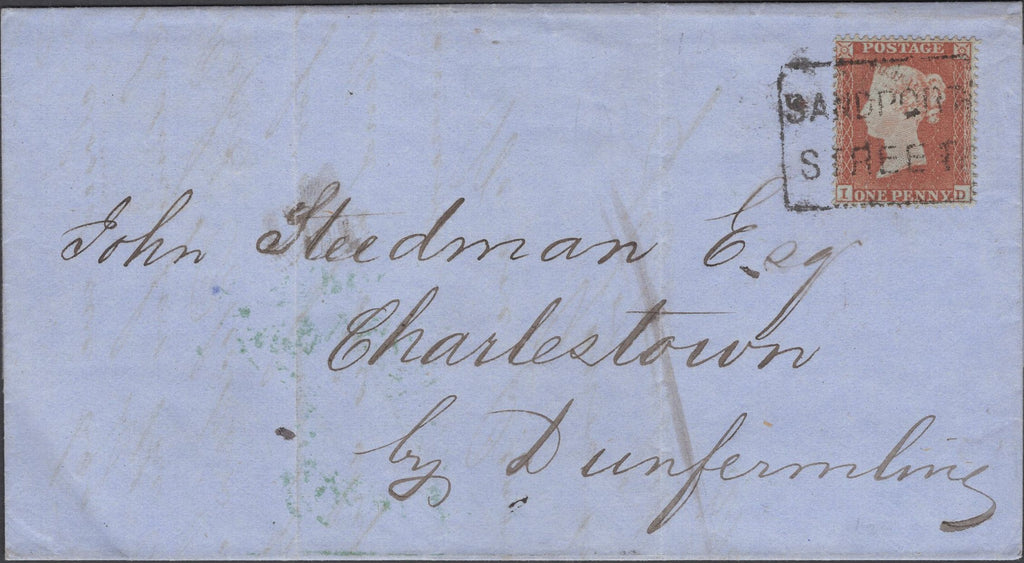 POSTAGE
SANDPORT
STREET
I ONE PENNY. D
John Steedman Esq
Charlestown
by Dunfermling